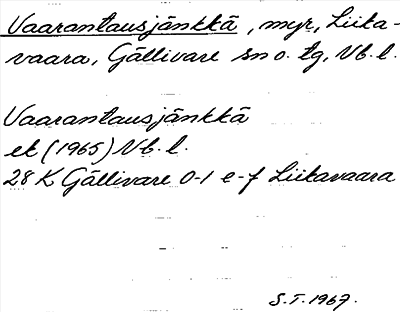 Vaarantausjänkkä, myr, Liika-
vaara, Gällivare sn o. tg, Nb. l.
Vaarantausjänkkä
ek (1965) Nb. l.
28 K Gällivare 0-1 e-f Liikavaara
S.T. 1967.